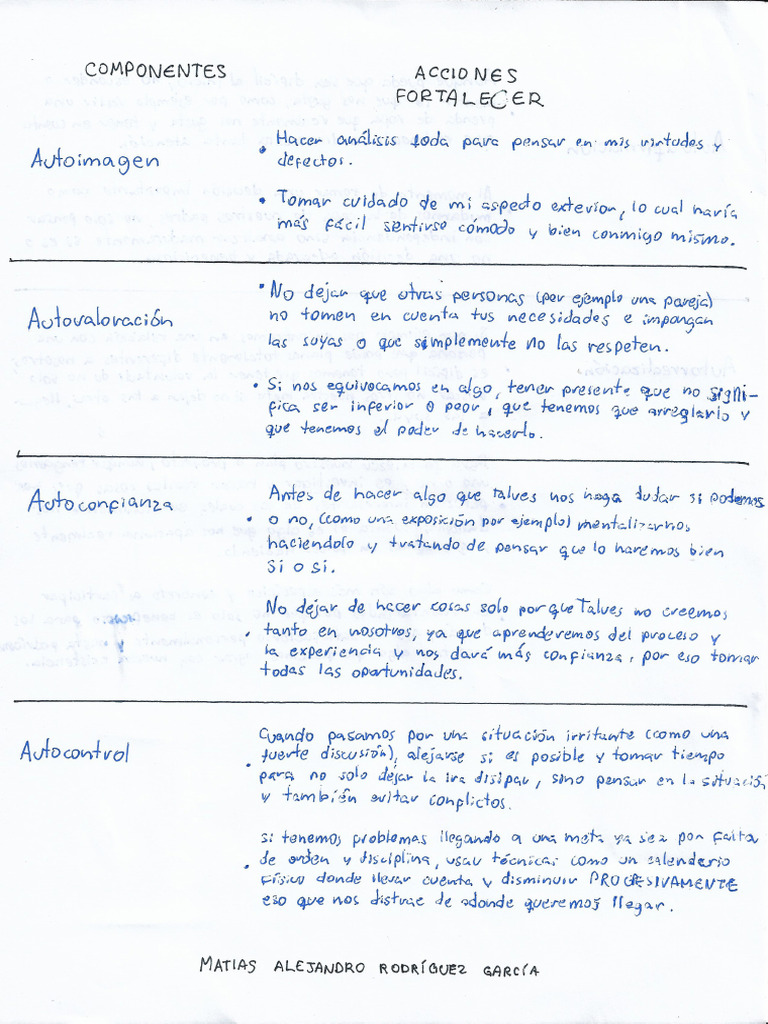 COMPONENTES
ACCIONES
FORTALECER
Autoimagen
• Hacer análisis foda para pensar en mis virtudes y
defectos.
• Tomar cuidado de mi aspecto exterior, lo cual haría
más fácil sentirse cómodo y bien conmigo mismo.
Autovaloración
• No dejar que otras personas (por ejemplo una pareja)
no tomen en cuenta tus necesidades e impongan
las suyas o que simplemente no las respeten.
• Si nos equivocamos en algo, tener presente que no signi-
fica ser inferior o peor, que tenemos que arreglarlo y
que tenemos el poder de hacerlo.
Autoconfianza
Antes de hacer algo que talves nos haga dudar si podemos
• o no, (como una exposición por ejemplo) mentalizarnos
haciendolo y tratando de pensar que lo haremos bien
si o si.
No dejar de hacer cosas solo porque Talves no creemos
• tanto en nosotros, ya que aprenderemos del proceso y
la experiencia y nos dará más confianza, por eso tomar
todas las oportunidades.
Autocontrol
Cuando pasamos por una situación irritante (como una
fuerte discusión), alejarse si es posible y tomar tiempo
• para no solo dejar la ira disipar, sino pensar en la situación
y también evitar conflictos.
si tenemos problemas llegando a una meta ya sea por falta
de orden y disciplina, usar técnicas como un calendario
• físico donde llevar cuenta y disminuir PROGESIVAMENTE
eso que nos distrae de adonde queremos llegar.
MATIAS ALEJANDRO RODRÍGUEZ GARCÍA